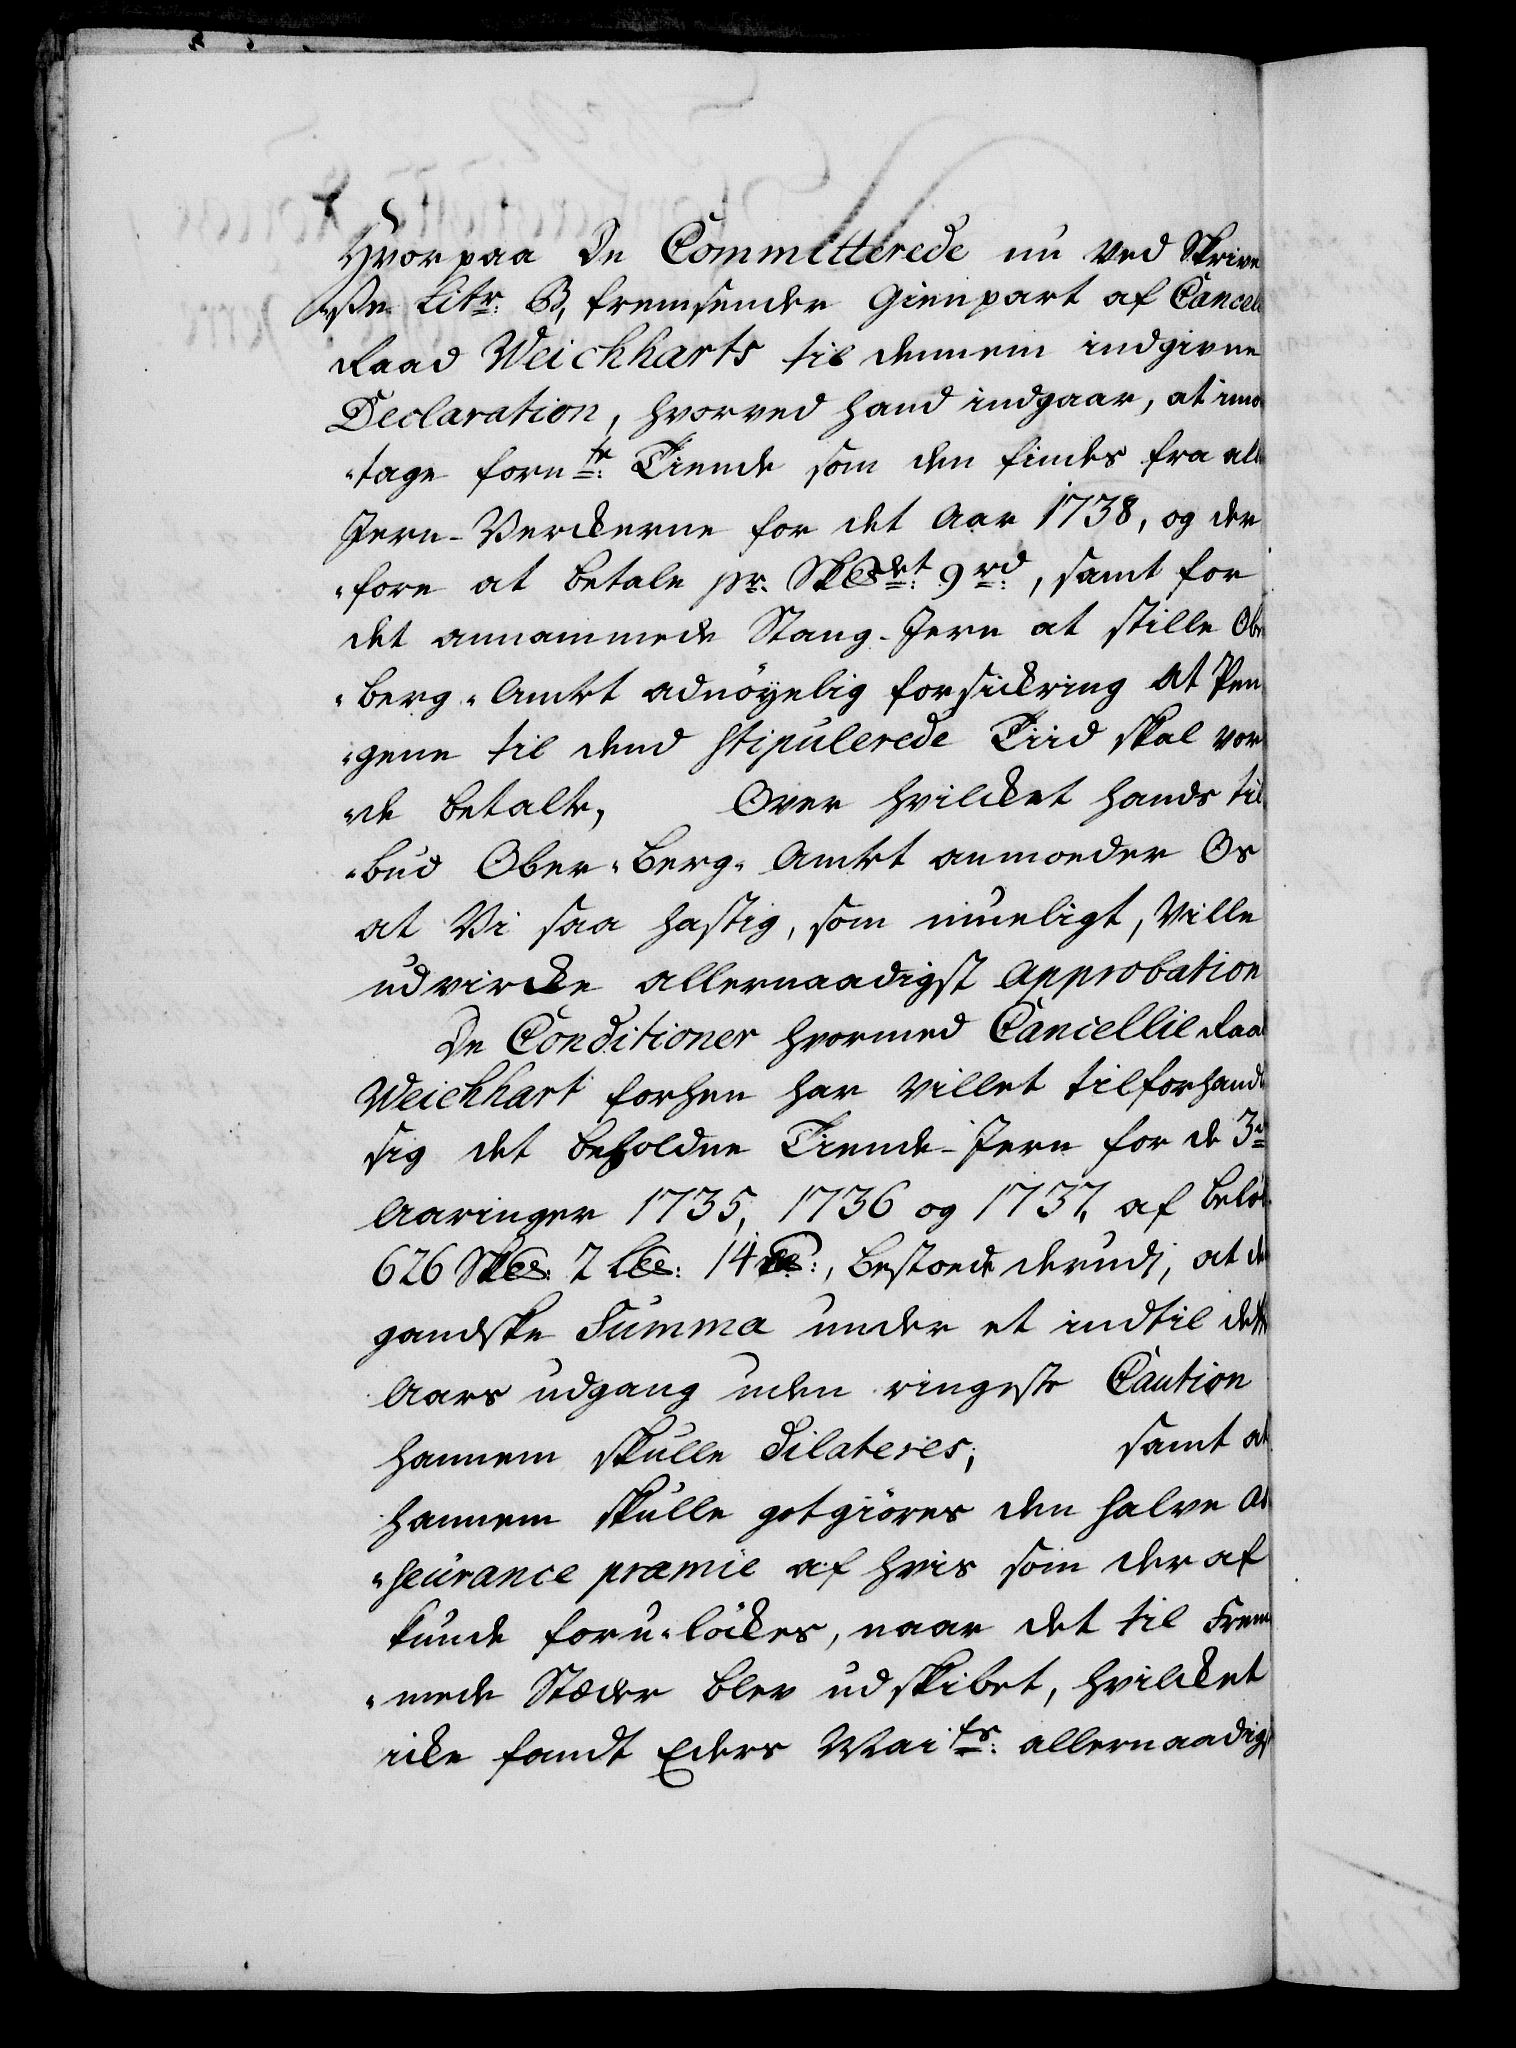 Hvorpaa De Committerede nu ved Skrivel
„se Litr: B, fremsender Gienpart af Cancel
Raad Weichharts til dennem indgivne
Declaration, hvorved hand indgaar, at imod
„tage fornte: Tiende som den findes fra alle
Jern-Verckerne for det Aar 1738, og der
„fore at betale pr. Skt: 9 rd:, samt for
det annammede Stang-Jern at stille Ober
„berg„Amtet adnöyelig forsickring at Pen
„gene til dend stipulerede Tiid skal vor
„de betalte, Over hvilcket hands til
„bud Ober„Berg„Amtet anmoeder Os
at Vi saa hastig, som mueligt, Ville
udvircke allernaadigst Approbation
De Conditioner hvormed Cancellie Raad
Weichhart forhen har villet tilforhandle
sig det beholdne Tiende-Jern for de 3de
Aaringer 1735, 1736 og 1737, af belöb
626 Sk: 2 L: 14 , bestoede derudj, at den
gandske Summa under et indtil dette
Aars udgang uden ringeste Caution
hannem skulle dilateres, samt at
hannem skulle gotgiöres den halve As
„seurance præmie af hvis som der af
kunde foru„löckes, naar det til Frem
„mede Stæder blev udskibet, hvilcket
icke fandt Eders Maits: allernaadigst